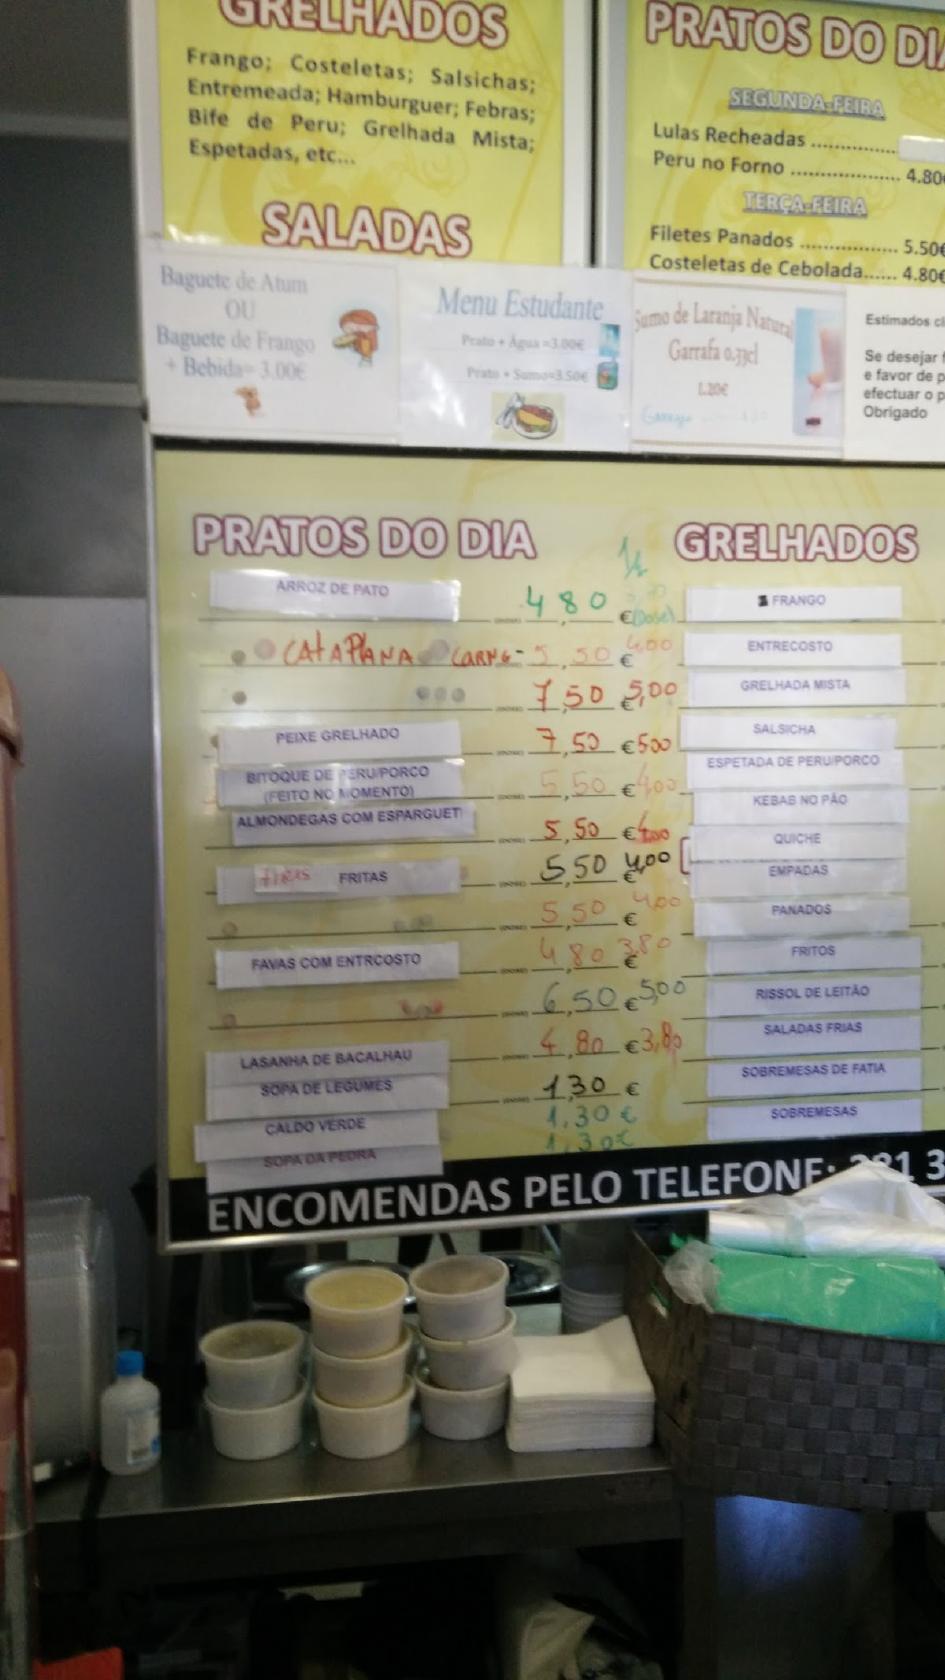 GRELHADOS
Frango; Costeletas; Salsichas;
Entremeada; Hamburguer; Febras;
Bife de Peru; Grelhada Mista;
Espetadas, etc...
SALADAS
PRATOS DO DIA
SEGUNDA-FEIRA
Lulas Recheadas
Peru no Forno 4.80€
TERÇA-FEIRA
Filetes Panados 5.50€
Costeletas de Cebolada...... 4.80€
Baguete de Atum
OU
Baguete de Frango
+ Bebida= 3.00€
Menu Estudante
Prato + Água =3.00€
Prato + Sumo=3.50€
Sumo de Laranja Natural
Garrafa 0.33cl
1.20€
Estimados
Se desejar
e favor de
efectuar o
Obrigado
PRATOS DO DIA
ARROZ DE PATO 4,80 € (Dose)
CATAPLANA CARNE- 5,50 € 4,00
7,50 € 5,00
PEIXE GRELHADO 7,50 € 500
BITOQUE DE PERU/PORCO
(FEITO NO MOMENTO) 5,50 € 4,00
ALMONDEGAS COM ESPARGUETI 5,50 € 4,00
FRITAS 5,50 € 4,00
5,50 € 4,00
FAVAS COM ENTRCOSTO 4,80 € 3,80
6,50 € 5,00
LASANHA DE BACALHAU 4,80 € 3,80
SOPA DE LEGUMES 1,30 €
CALDO VERDE 1,30 €
SOPA DA PEDRA 1,30€
GRELHADOS
FRANGO
ENTRECOSTO
GRELHADA MISTA
SALSICHA
ESPETADA DE PERU/PORCO
KEBAB NO PÃO
QUICHE
EMPADAS
PANADOS
FRITOS
RISSOL DE LEITÃO
SALADAS FRIAS
SOBREMESAS DE FATIA
SOBREMESAS
ENCOMENDAS PELO TELEFONE: